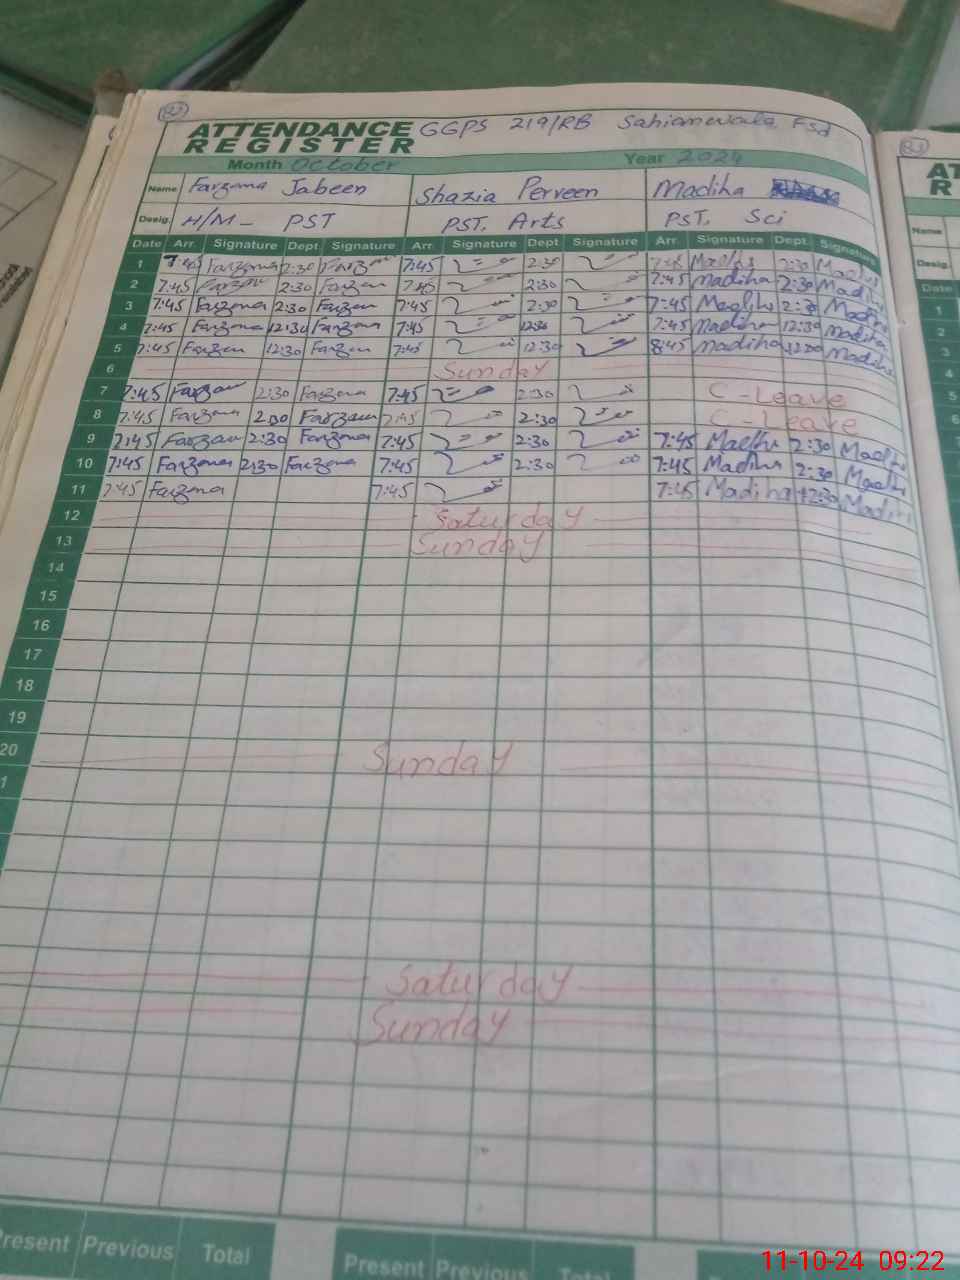 ATTENDANCE REGISTER GGPS 219/RB Sahianwala Fsd
Month October Year 2024
Name Farzana Jabeen Shazia Perveen Madiha
Desig. H/M- PST PST. Arts PST. Sci
Date Arr. Signature Dept. Signature Arr. Signature Dept Signature Arr. Signature Dept. Signature
1 7:45 Farzana 2:30 Farzan 7:45 2:30 7:45 Madiha 2:30 Madiha
2 7:45 Farzan 2:30 Farzan 7:45 2:30 7:45 Madiha 2:30 Madiha
3 7:45 Farzana 2:30 Farzan 7:45 2:30 7:45 Madiha 2:30 Madiha
4 7:45 Farzana 12:30 Farzana 7:45 12:30 7:45 Madiha 12:30 Madiha
5 7:45 Farzan 12:30 Farzan 7:45 12:30 8:45 Madiha Madiha
6 Sunday
7 7:45 Farzan 2:30 Farzana 7:45 2:30 C-Leave
8 7:45 Farzana 2:30 Farzana 7:45 2:30 C-Leave
9 7:45 Farzan 2:30 Farzana 7:45 2:30 7:45 Madiha 2:30 Madiha
10 7:45 Farzana 2:30 Farzana 7:45 2:30 7:45 Madiha 2:30 Madiha
11 7:45 Farzana 7:45 7:45 Madiha 12:30 Madiha
12 Saturday
13 Sunday
14
15
16
17
18
19
20 Sunday
1
Saturday
Sunday
Present Previous Total Present Previous Total
11-10-24 09:22
AT
R
Name
Desig.
Date
1
2
3
4
5
6